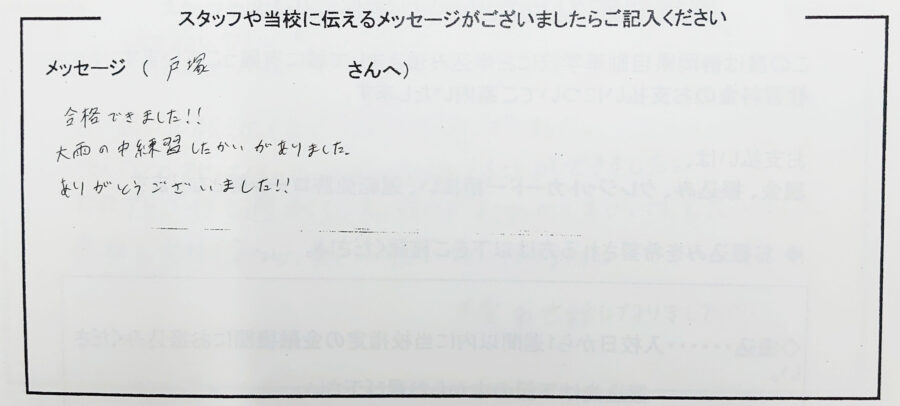 スタッフや当校に伝えるメッセージがございましたらご記入ください
メッセージ ( 戸塚 さんへ)
合格できました!!
大雨の中練習したかいがありました。
ありがとうございました!!